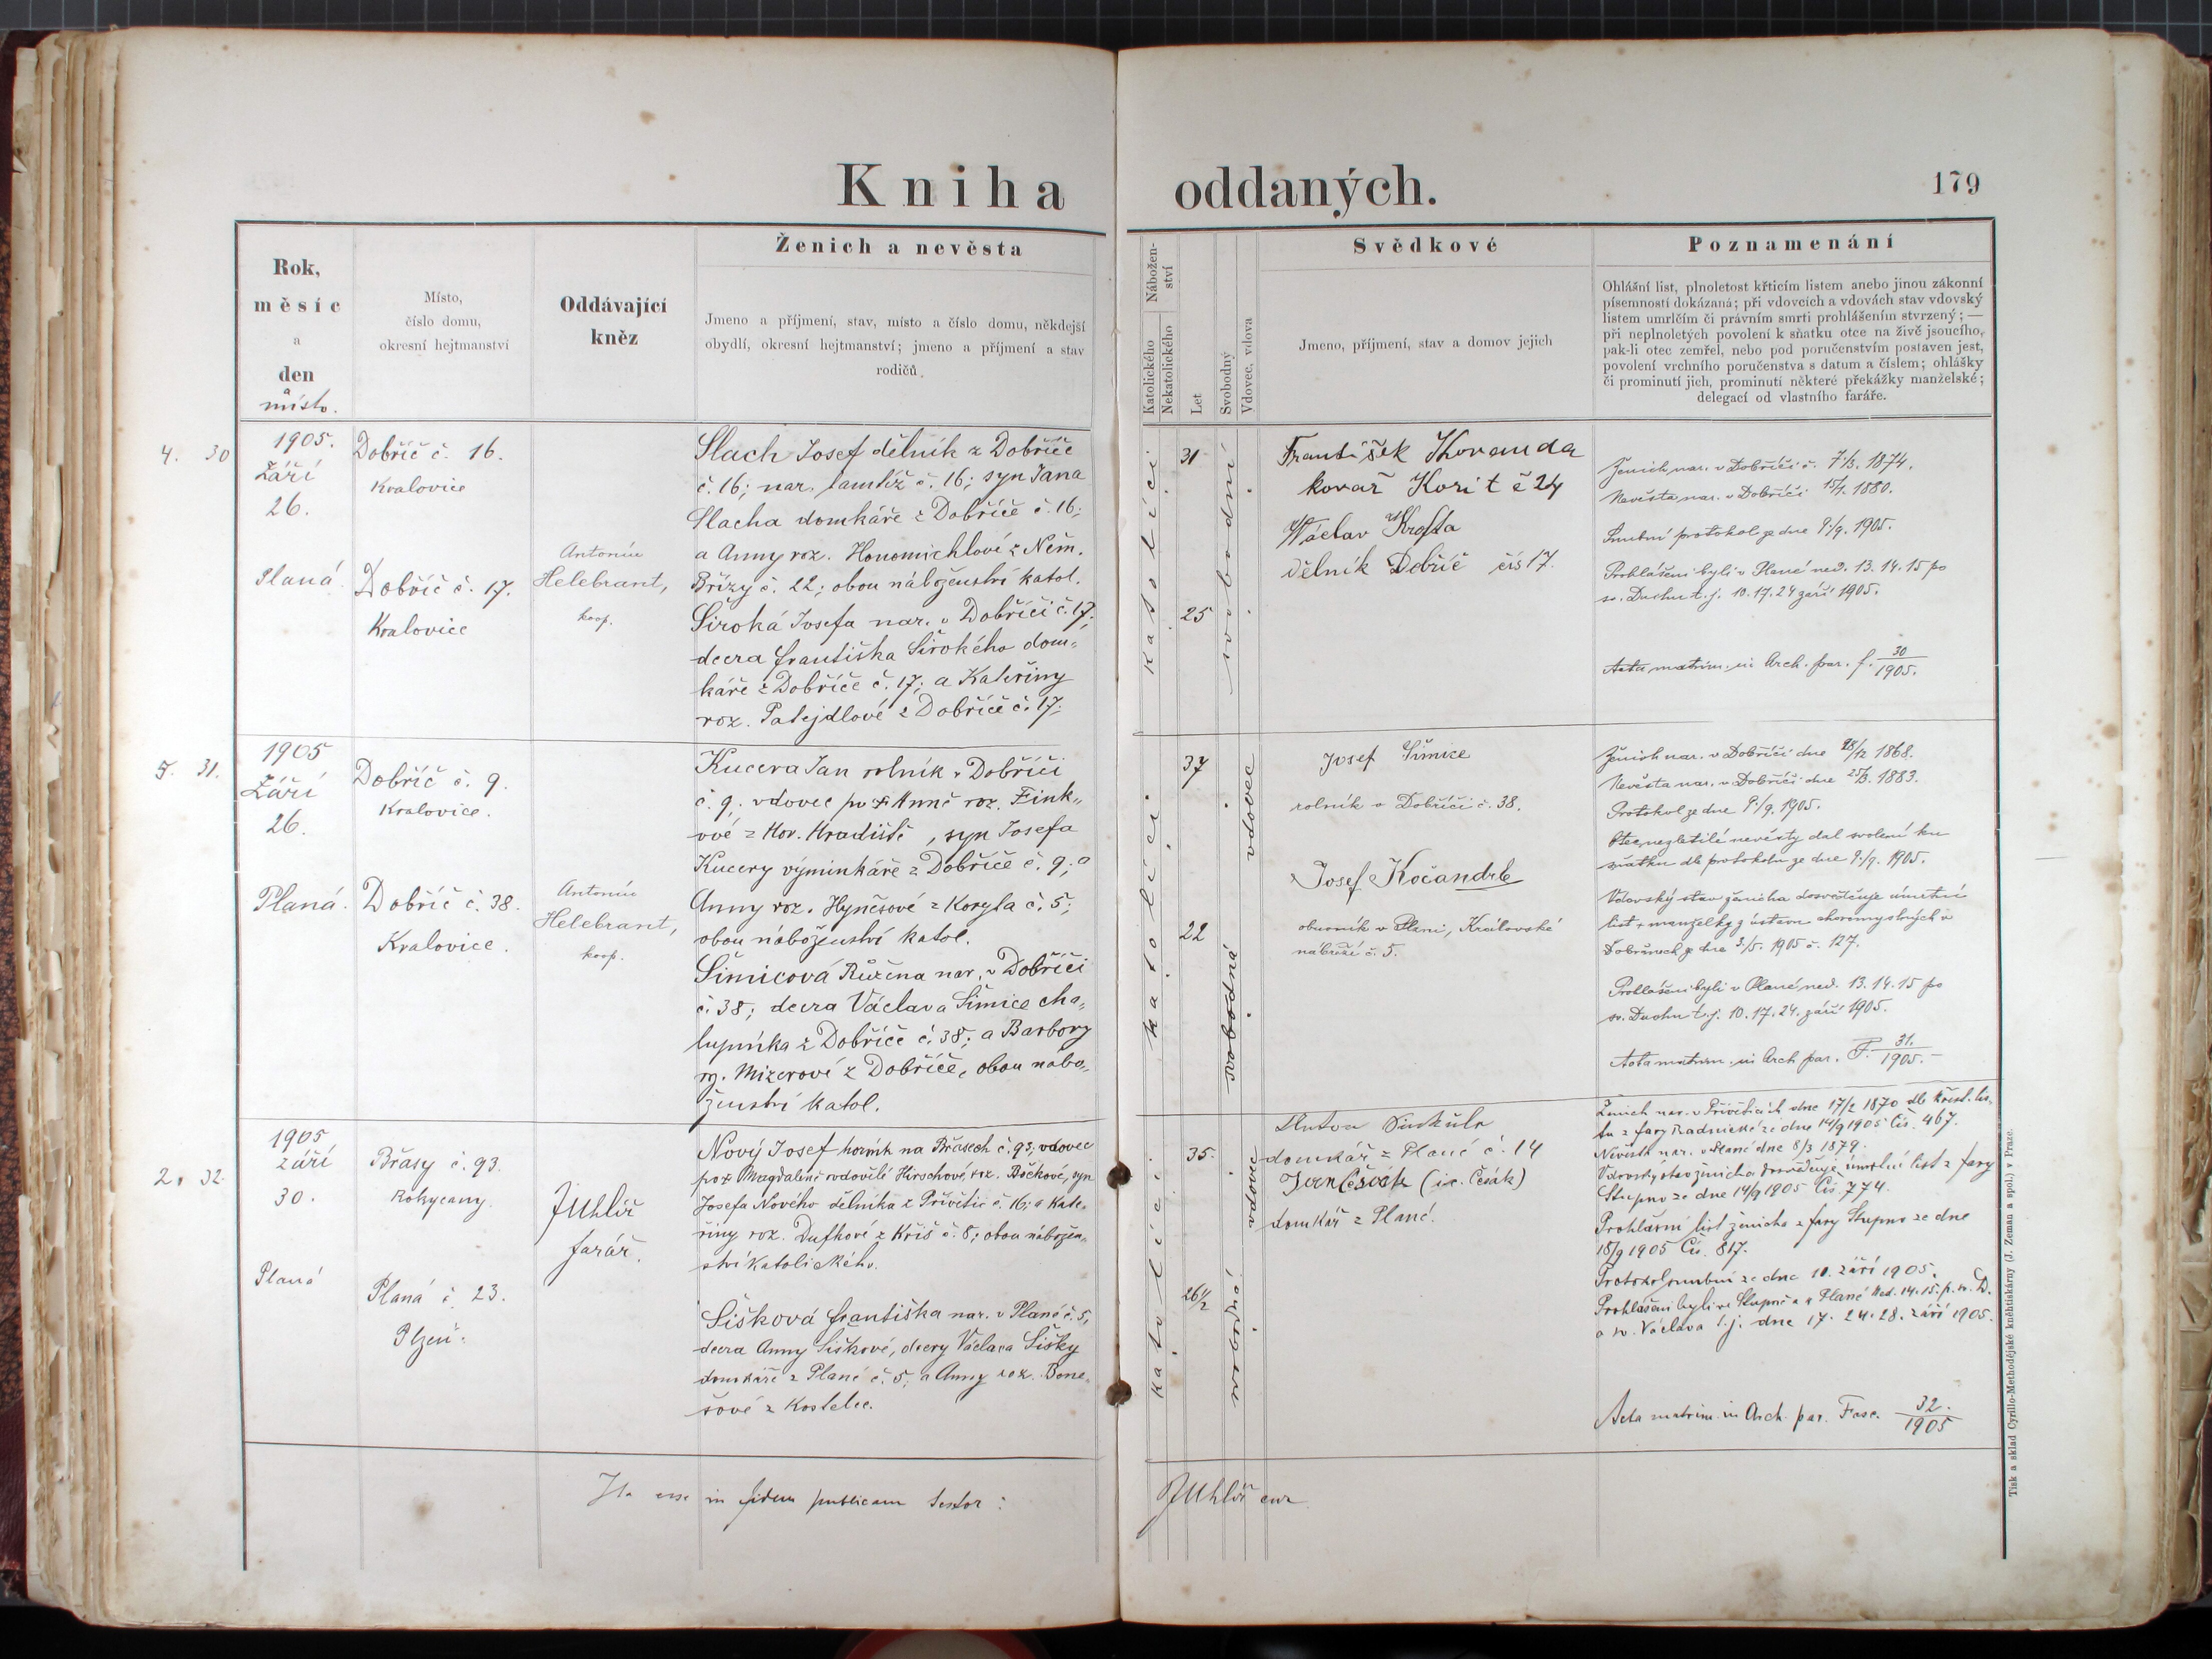 Kniha oddaných.
179
Rok,
měsíc
a
den
místo.
Místo,
číslo domu,
okresní hejtmanství
Oddávající
kněz
Ženich a nevěsta
Jmeno a příjmení, stav, místo a číslo domu, někdejší
obydlí, okresní hejtmanství; jmeno a příjmení a stav
rodičů.
Nábožen-
ství
Katolického
Nekatolického
Let
Svobodný
Vdovec, vdova
Svědkové
Jmeno, příjmení, stav a domov jejich
Poznamenání
Ohlášní list, plnoletost křticím listem anebo jinou zákonní
písemností dokázaná; při vdovcích a vdovách stav vdovský
listem umrlčím či právním smrti prohlášením stvrzený; —
při neplnoletých povolení k sňatku otce na živě jsoucího,
pak-li otec zemřel, nebo pod poručenstvím postaven jest,
povolení vrchního poručenstva s datum a číslem; ohlášky
či prominutí jich, prominutí některé překážky manželské;
delegací od vlastního faráře.
4. 30
1905.
Září
26.
Planá.
Dobříč č. 16.
Kralovice
Dobříč č. 17.
Kralovice
Antonín
Helebrant,
koop.
Slach Josef dělník z Dobříče
č. 16; nar. tamtéž č. 16; syn Jana
Slacha domkáře z Dobříče č. 16;
a Anny roz. Honomichlové z Něm.
Břízy č. 22; obou náboženství katol.
Široká Josefa nar. v Dobříči č. 17;
dcera Františka Širokého dom-
káře z Dobříče č. 17; a Kateřiny
roz. Patejdlové z Dobříče č. 17;
katolíci
31
25
svobodní
František Koranda
kovař Korit č 24
Václav Krofta
dělník Dobříč čís 17.
Ženich nar. v Dobříči č. 7/3. 1874.
Nevěsta nar. v Dobříči 15/1. 1880.
Snubní protokol ze dne 9./9. 1905.
Prohlášeni byli v Plané ned. 13. 14. 15 po
sv. Duchu t. j. 10. 17. 24 září 1905.
Acta matrim. in Arch. par. f. 30/1905.
5. 31.
1905
Září
26.
Planá.
Dobříč č. 9.
Kralovice.
Dobříč č. 38.
Kralovice.
Antonín
Helebrant,
koop.
Kucera Jan rolník v Dobříči
č. 9. vdovec po † Anně roz. Fink-
ové z Hor. Hradiště, syn Josefa
Kucery výminkáře z Dobříče č. 9; a
Anny roz. Hynčsové z Koryta č. 5;
obou náboženství katol.
Šimicová Růžena nar. v Dobříči
č. 38; dcera Václava Šimice cha-
lupníka z Dobříče č. 38; a Barbory
rz. Mizerové z Dobříče, obou nábo-
ženství katol.
katolíci
37
22
vdovec
svobodná
Josef Šimice
rolník v Dobříči č. 38.
Josef Kočandrle
obuvník v Plzni, Královské
nábřeží č. 5.
Ženich nar. v Dobříči dne 28/12 1868.
Nevěsta nar. v Dobříči dne 25/3. 1883.
Protokol ze dne 9./9. 1905.
Otec nezletilé nevěsty dal svolení ku
sňatku dle protokolu ze dne 9./9. 1905.
Vdovský stav ženicha dosvědčuje úmrtní
list † manželky z ústavu choromyslných v
Dobřanech ze dne 3./5. 1905 č. 127.
Prohlášeni byli v Plané, ned. 13. 14. 15 po
sv. Duchu t. j. 10. 17. 24. září 1905.
Acta matrim. in Arch par. F. 31./1905.
2. 32.
1905
září
30.
Planá
Břasy č. 93.
Rokycany.
Planá č. 23.
Plzeň.
JUhlíř
farář.
Nový Josef horník na Břasech č. 93; vdovec
po † Magdaleně ovdovělé Hirschové, roz. Bočkové, syn
Josefa Nového dělníka z Přívětic č. 16; a Kate-
řiny roz. Dufkové z Kříš č. 8; obou nábožen-
ství katolického.
Šišková Františka nar. v Plané č. 5,
dcera Anny Šiškové, dcery Václava Šišky
domkáře z Plané č. 5; a Anny roz. Bene-
šové z Kostelce.
katolíci
35.
26 1/2
vdovec
svobodná
Anton Sinkůle
domkář z Plané č. 14
Jan Čésák (i. e. Česák)
domkář z Plané.
Ženich nar. v Přívěticích dne 17/2 1870 dle křest. lis-
tu z fary Radnické ze dne 14/9 1905 Čís. 467.
Nevěsta nar. v Plané dne 8/3 1879.
Vdovský stav ženicha dosvědčuje úmrtní list z fary
Stupno ze dne 14/9 1905 Čís 774.
Prohlášní list ženicha z fary Stupno ze dne
18/9 1905 Čís. 817.
Protokol snubní ze dne 10. září 1905.
Prohlášeni byli ve Stupně a v Plané Ned. 14. 15. p. sv. D.
a sv. Václava t. j. dne 17. 24. 28. září 1905.
Acta matrim. in Arch. par. Fasc. 32./1905
Ita esse in fidem publicam testor:
JUhlíř cur
Tisk a sklad Cyrillo-Methodějské kněhtiskárny (J. Zeman a spol.) v Praze.